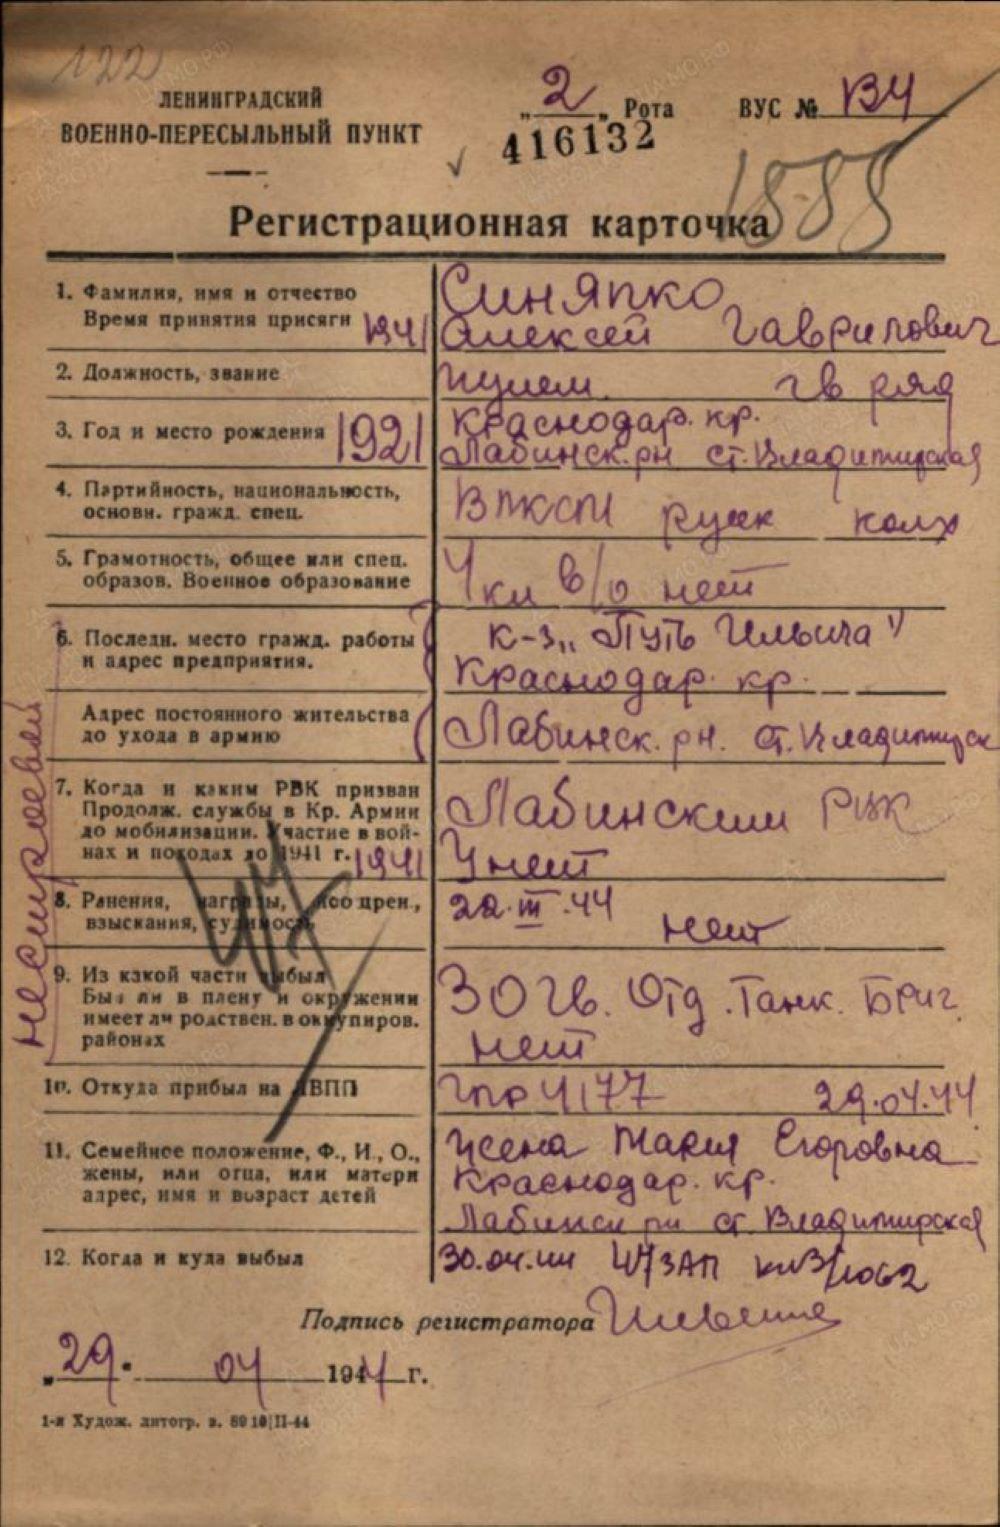 122
ЛЕНИНГРАДСКИЙ
ВОЕННО-ПЕРЕСЫЛЬНЫЙ ПУНКТ
„2„ Рота ВУС № 134
416132
1888
Регистрационная карточка
1. Фамилия, имя и отчество
Время принятия присяги 1941
Синяпко
Алексей Гаврилович
2. Должность, звание
пулем. гв ряд
3. Год и место рождения 1921
Краснодар. кр.
Лабинск. рн ст. Владимирская
4. Партийность, национальность,
основн. гражд. спец.
ВЛКСМ русск колх
5. Грамотность, общее или спец.
образов. Военное образование
4 кл в/о нет
6. Последн. место гражд. работы
и адрес предприятия.
к-з „Путь Ильича"
Краснодар. кр.
Адрес постоянного жительства
до ухода в армию
Лабинск. рн. ст. Владимирск
7. Когда и каким РВК призван
Продолж. службы в Кр. Армии
до мобилизации. Участие в вой-
нах и походах до 1941 г. 1941
Лабинским РВК
У нет
8. Ранения, награды, поощрен.,
взыскания, судимость
22.III.44
нет
9. Из какой части выбыл
Был ли в плену и окружении
имеет ли родствен. в оккупиров.
районах
30 гв. Отд. Танк. Бриг.
нет
10. Откуда прибыл на ЛВПП
ГЛР 4177 29.04.44
11. Семейное положение, Ф., И., О.,
жены, или отца, или матери
адрес, имя и возраст детей
жена Мария Егоровна
Краснодар. кр.
Лабинск рн ст. Владимирская
12. Когда и куда выбыл
30.04.44 47 ЗАП
Подпись регистратора
„29. 04 1944 г.
1-я Худож. литогр. з. 8910 II-44
47